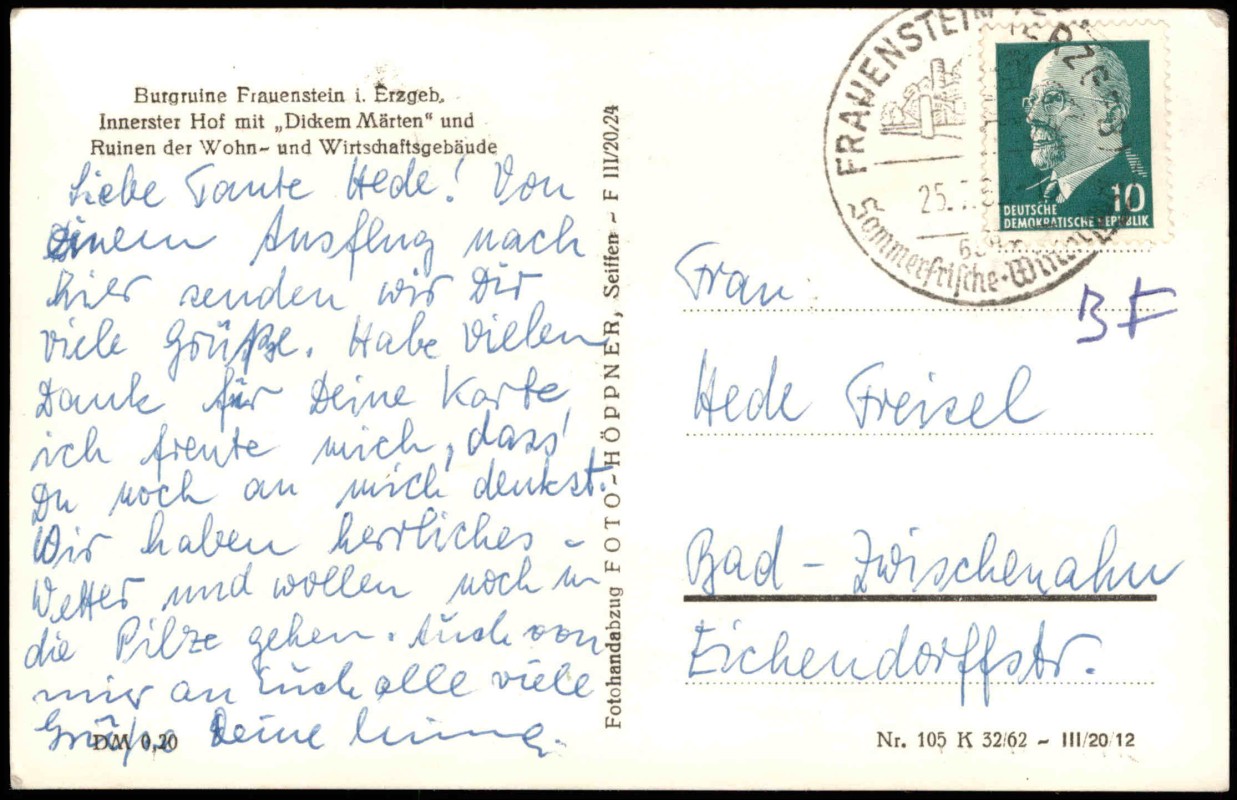 Burgruine Frauenstein i. Erzgeb.
Innerster Hof mit „Dickem Märten“ und
Ruinen der Wohn- und Wirtschaftsgebäude
Liebe Tante Hede! Von
einem Ausflug nach
hier senden wir Dir
viele Grüße. Habe vielen
Dank für Deine Karte,
ich freute mich, dass
Du noch an mich denkst.
Wir haben herrliches -
Wetter und wollen noch in
die Pilze gehen. Auch von
mir an Euch alle viele
Grüße Deine
DM 0,20
Fotohandabzug FOTO-HÖPPNER, Seiffen - F III/20/24
FRAUENSTEIN
ERZGEB
25.7.
Sommerfrische-Winter
10
DEUTSCHE
DEMOKRATISCHE REPUBLIK
Frau
BF
Hede Freisel
Bad - Zwischenahn
Eichendorffstr.
Nr. 105 K 32/62 - III/20/12